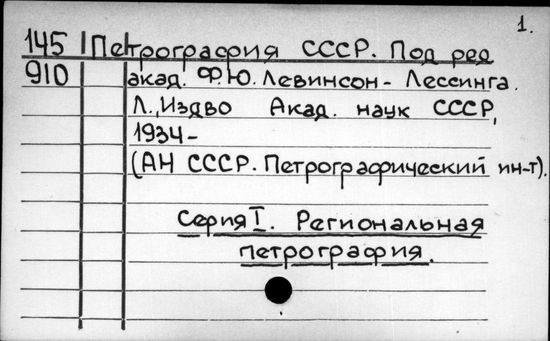 1.
145 Петрография СССР. Под ред
910 акад. Ф.Ю. Левинсон-Лессинга.
Л., Издво Акад. наук СССР,
1934-
(АН СССР. Петрографический ин-т).
Серия I. Региональная
петрография.